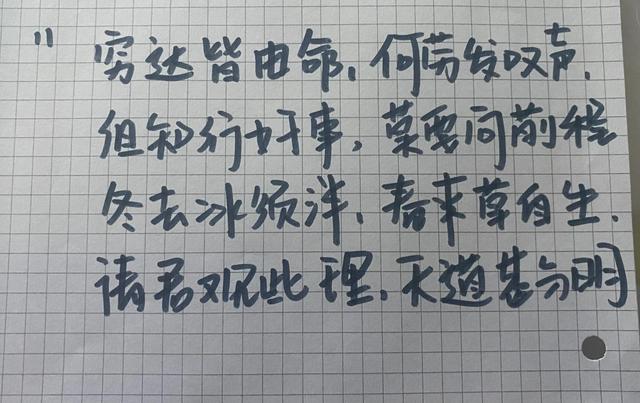 "穷达皆由命,何劳发叹声.
但知行好事,莫要问前程
冬去冰须泮,春来草自生.
请君观此理,天道甚分明